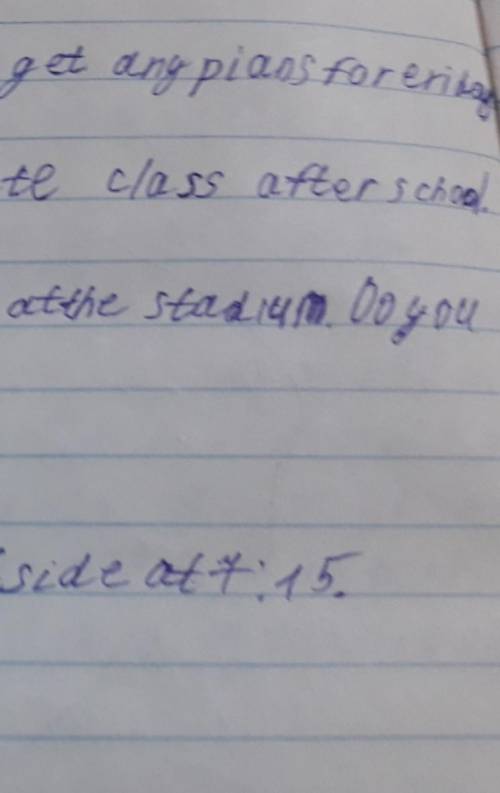 get any pians for eriday
te class after school.
at the stadium. Do you
side at 7:15.